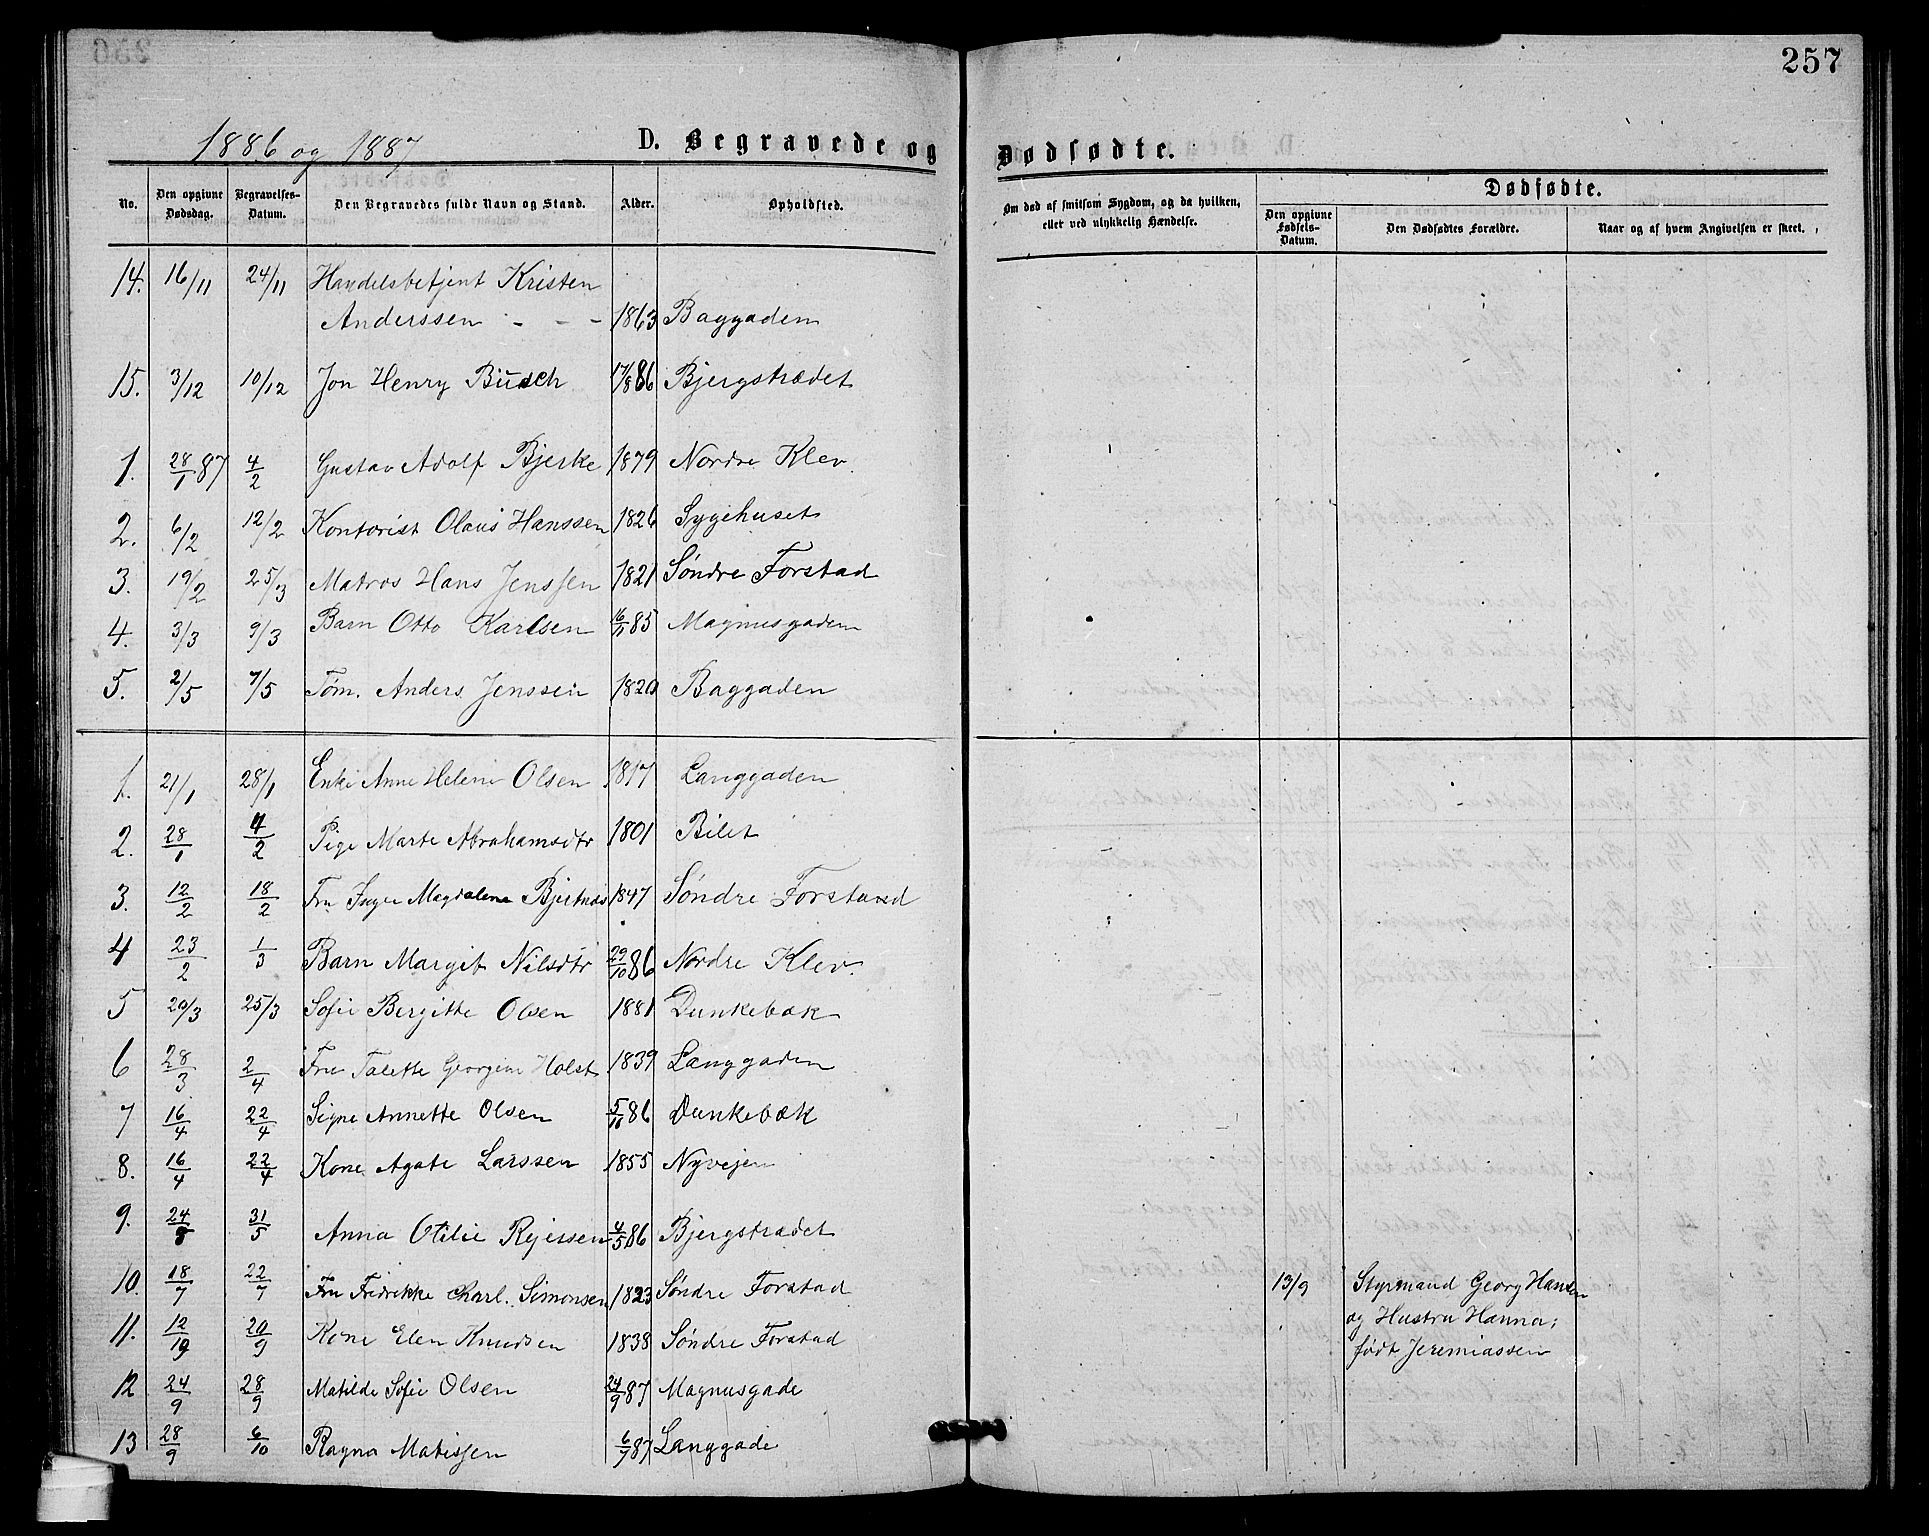 257
1886 og 1887
D. Begravede og
Dødfødte.
No.
Den opgivne Dødsdag.
Begravelses-Datum.
Den Begravedes fulde Navn og Stand.
Alder.
Opholdsted.
Om død af smitsom Sygdom, og da hvilken, eller ved ulykkelig Hændelse.
Dødfødte.
Den opgivne Fødsels-Datum.
Den Dødfødtes Forældre.
Naar og af hvem Angivelsen er skeet.
14. 16/11 24/11 Handelsbetjent Kristen
Anderssen - - - 1863 Baggaden
15. 3/12 10/12 Jon Henry Büsch 17/8 86 Bjergstrædet
1. 28/1 87 4/2 Gustav Adolf Bjerke 1879 Nordre Klev.
2. 6/2 12/2 Kontorist Olaus Hanssen 1826 Sygehuset
3. 19/2 25/3 Matros Hans Jenssen 1821 Søndre Forstad
4. 3/3 9/3 Barn Otto Karlsen 16/11 85 Magnusgaden
5. 2/5 7/5 Töm. Anders Jenssen 1820 Baggaden
1. 21/1 28/1 Enke Anne Helene Olsen 1817 Langgaden
2. 28/1 4/2 Pige Marte Abrahamsdtr 1801 Bilet
3. 12/2 18/2 Fru Inger Magdalena Bjertnæs 1847 Søndre Forstad
4 23/2 1/3 Barn Margit Nilsdtr 29/10 86 Nordre Klev.
5 20/3 25/3 Sofie Bergitte Olsen 1881 Dunkebæk
6 28/3 2/4 Fru Talette Georgine Holst 1839 Langgaden
7 16/4 22/4 Signe Annette Olsen 5/11 86 Dunkebæk
8. 16/4 22/4 Kone Agate Larssen 1855 Nyvejen
9. 24/5 31/5 Anna Otilie Rejersen 4/5 86 Bjergstrædet
10. 18/7 22/7 Fru Fredrikke Charl. Simonsen 1823 Søndre Forstad
13/9 Styrmand Georg Hansen
og Hustru Hanna;
født Jeremiassen
11. 12/9 20/9 Kone Elen Knudsen 1838 Søndre Forstad
12 24/9 28/9 Matilde Sofie Olsen 24/9 87 Magnusgade
13 28/9 6/10 Ragna Matissen 6/7 87 Langgade